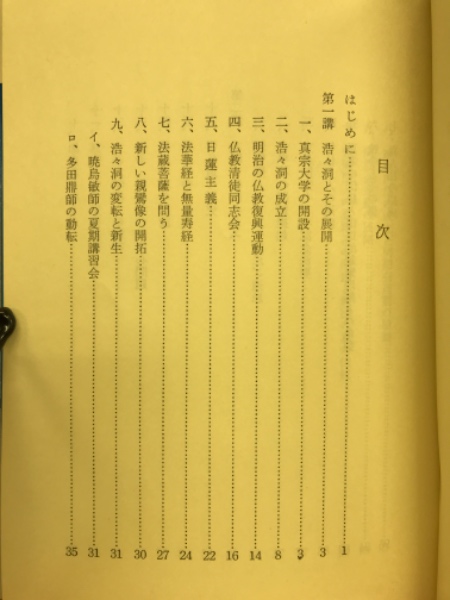 目次
はじめに……1
第一講 浩々洞とその展開……3
一、真宗大学の開設……3
二、浩々洞の成立……8
三、明治の仏教復興運動……14
四、仏教清徒同志会……16
五、日蓮主義……22
六、法華経と無量寿経……24
七、法蔵菩薩を問う……27
八、新しい親鸞像の開拓……30
九、浩々洞の変転と新生……31
イ、暁烏敏師の夏期講習会……31
ロ、多田鼎師の動転……35